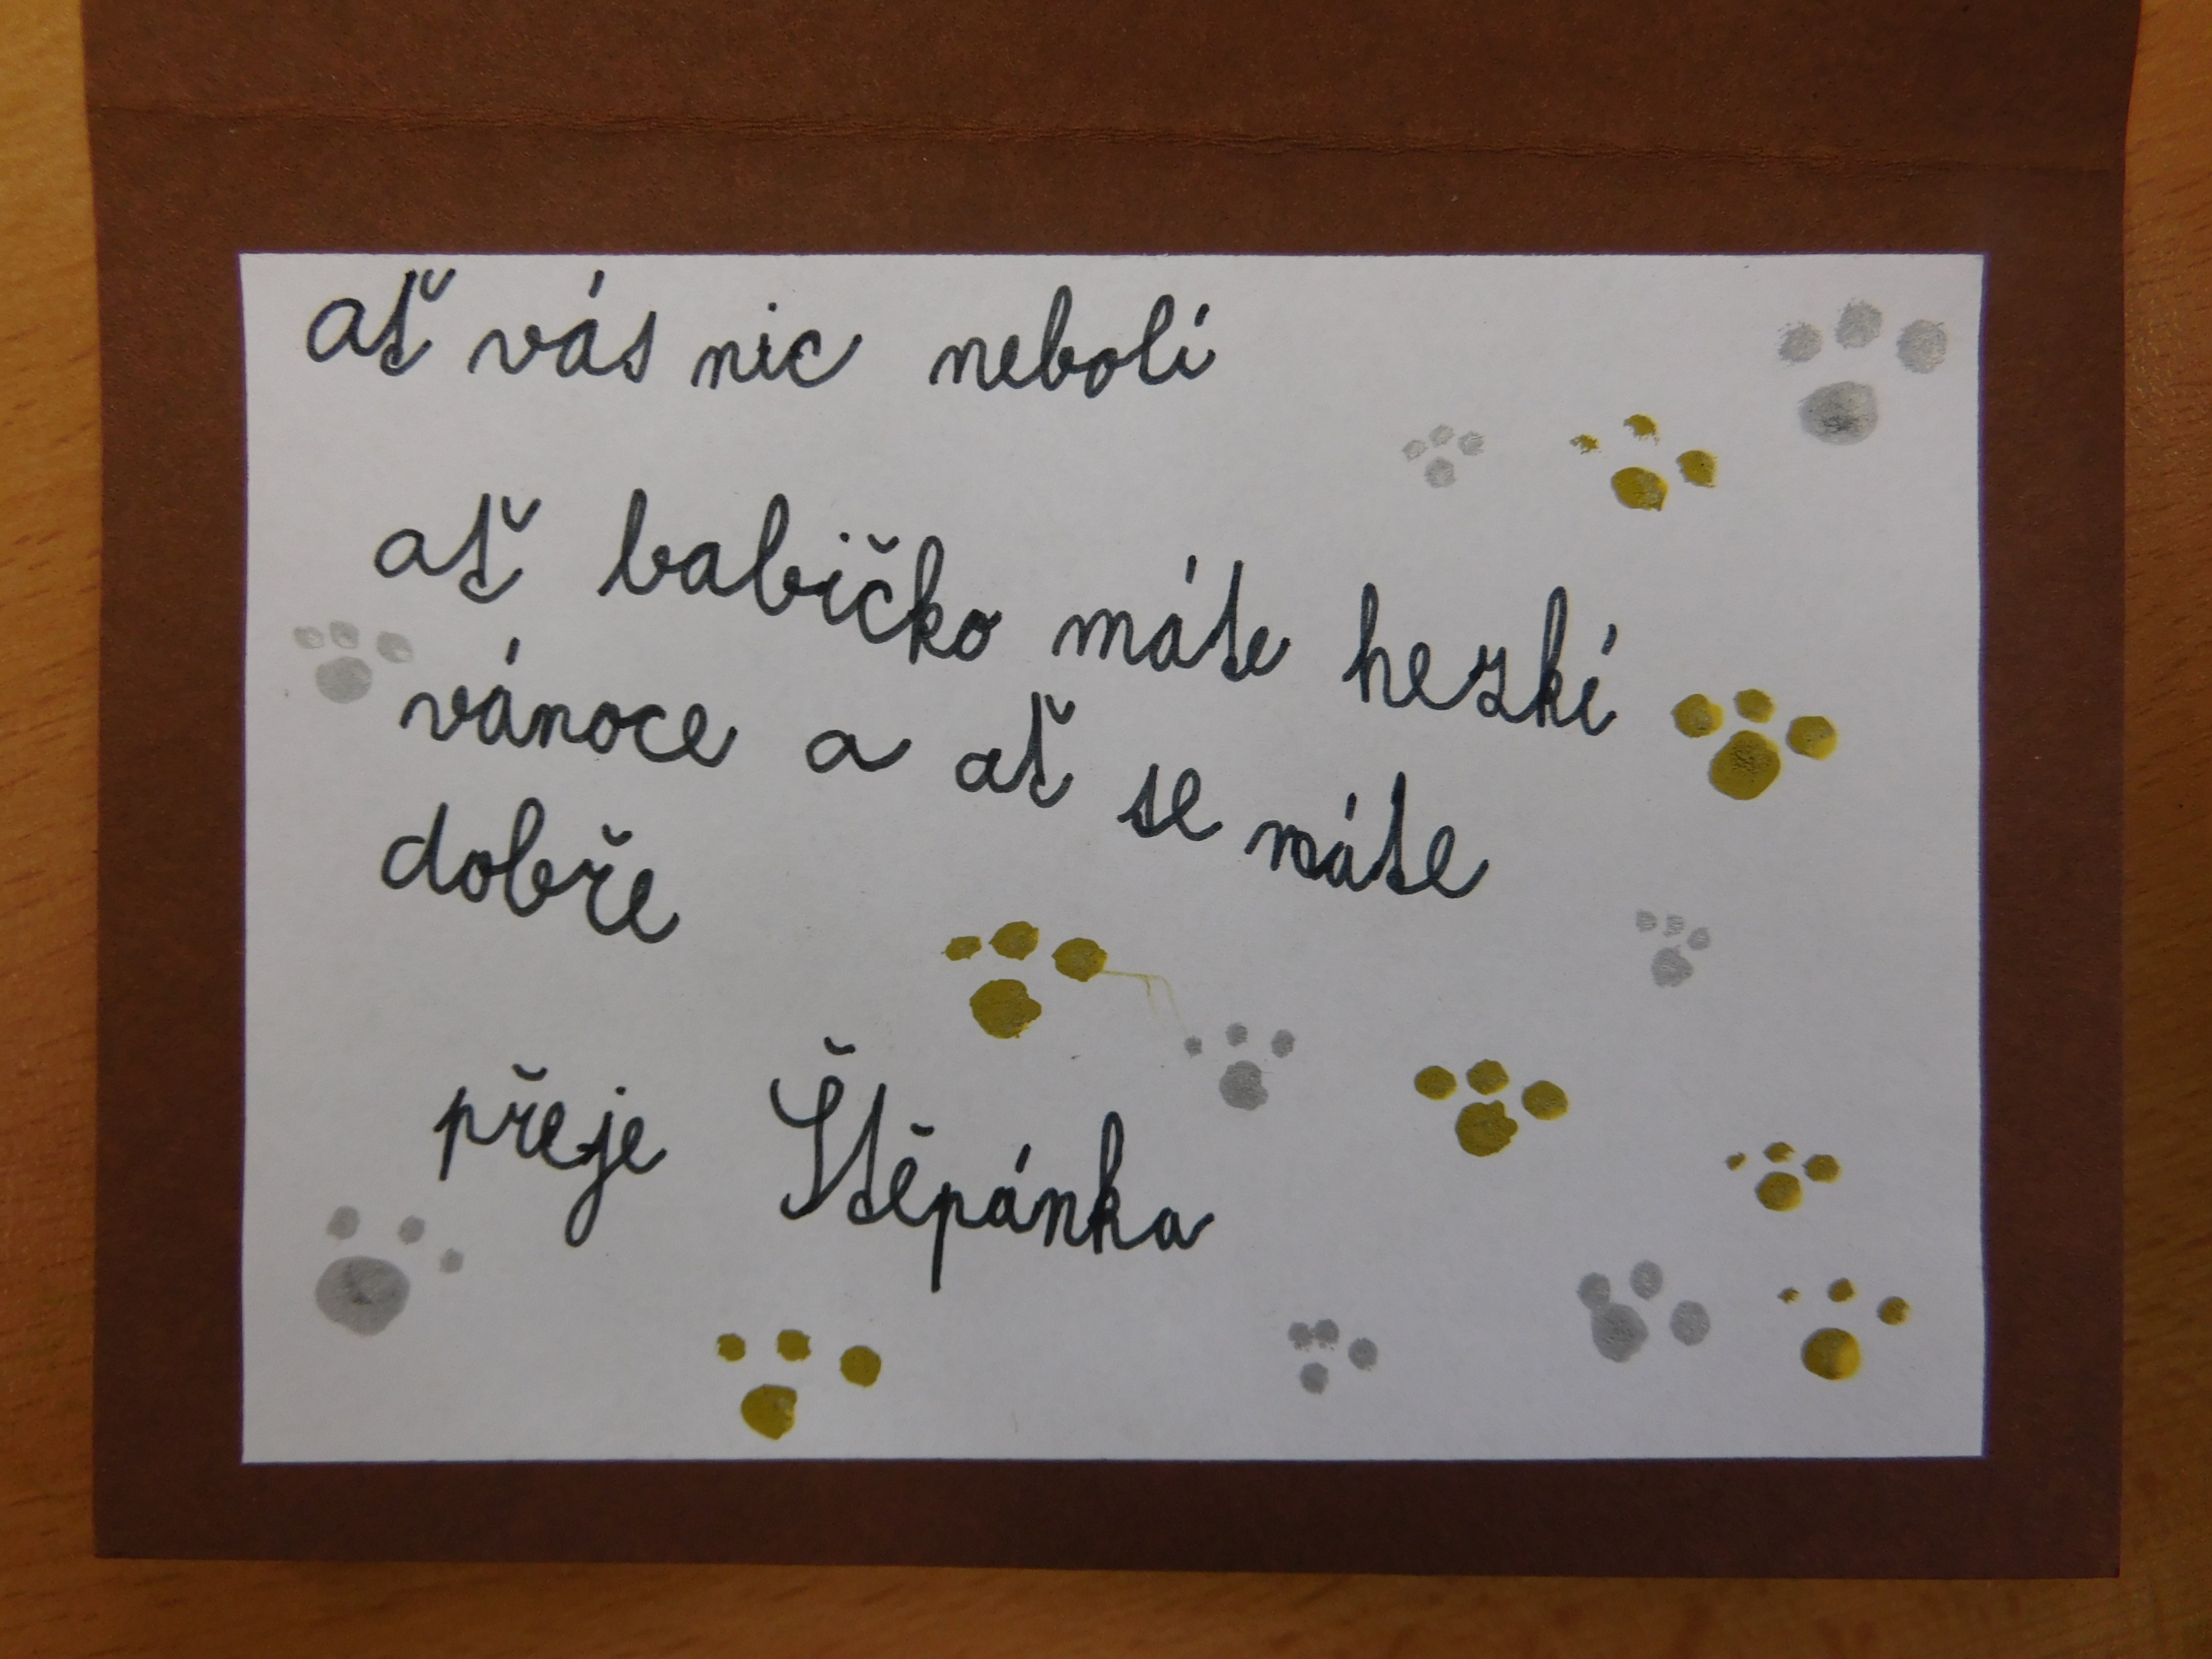 ať vás nic nebolí
ať babičko máte hezkí
vánoce a ať se máte
dobře
přeje Štěpánka